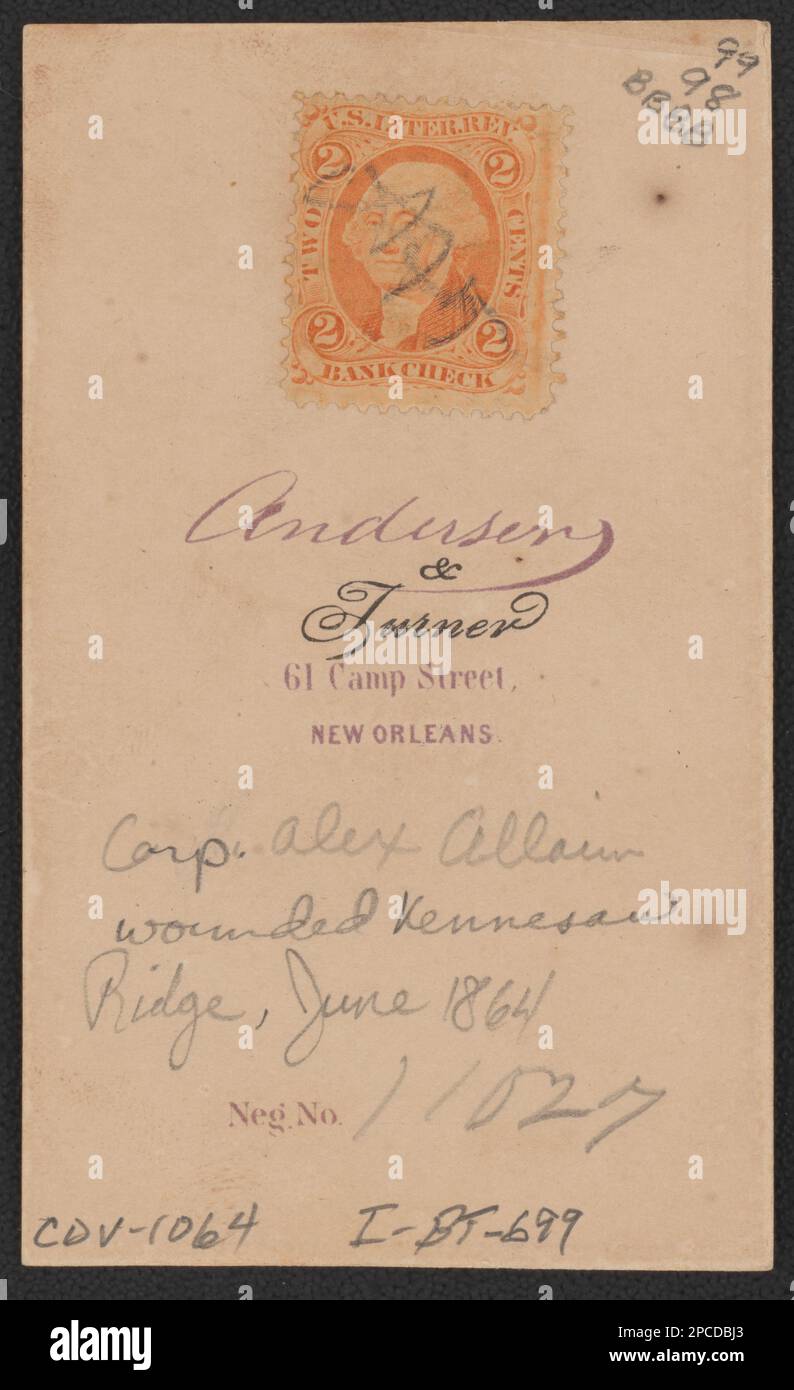 99
98
BBGB
U.S. INTER. REV.
2 2
TWO CENTS
2 2
BANK CHECK
Anderson
&
Turner
61 Camp Street,
NEW ORLEANS.
Corp. Alex
wounded Kennesaw
Ridge, June 1864
Neg. No. 11027
CDV-1064 I-BT-699
alamy
Image ID: 2PCDBJ3
www.alamy.com